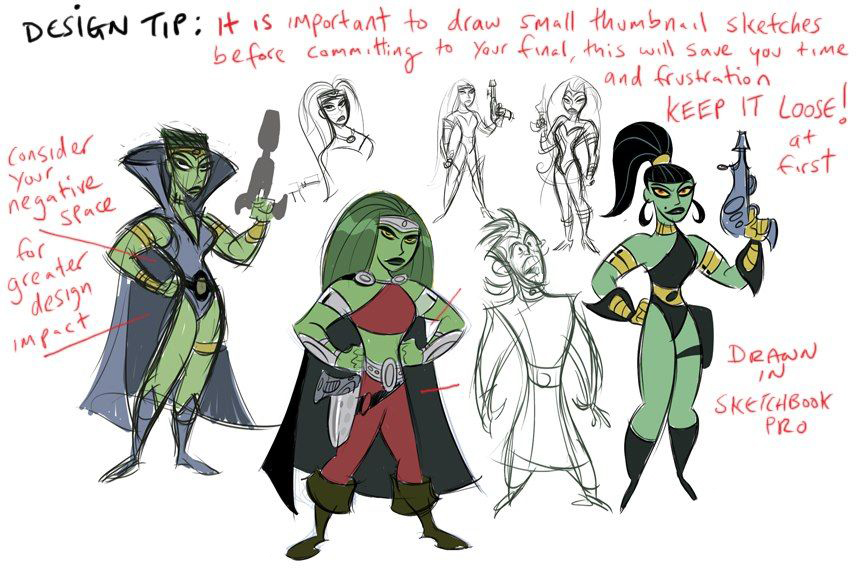 DESIGN TIP: It is important to draw small thumbnail sketches
before committing to your final, this will save you time
and frustration
KEEP IT LOOSE!
at
first
Consider
your
negative
space
for
greater
design
impact
DRAWN
IN
SKETCHBOOK
PRO